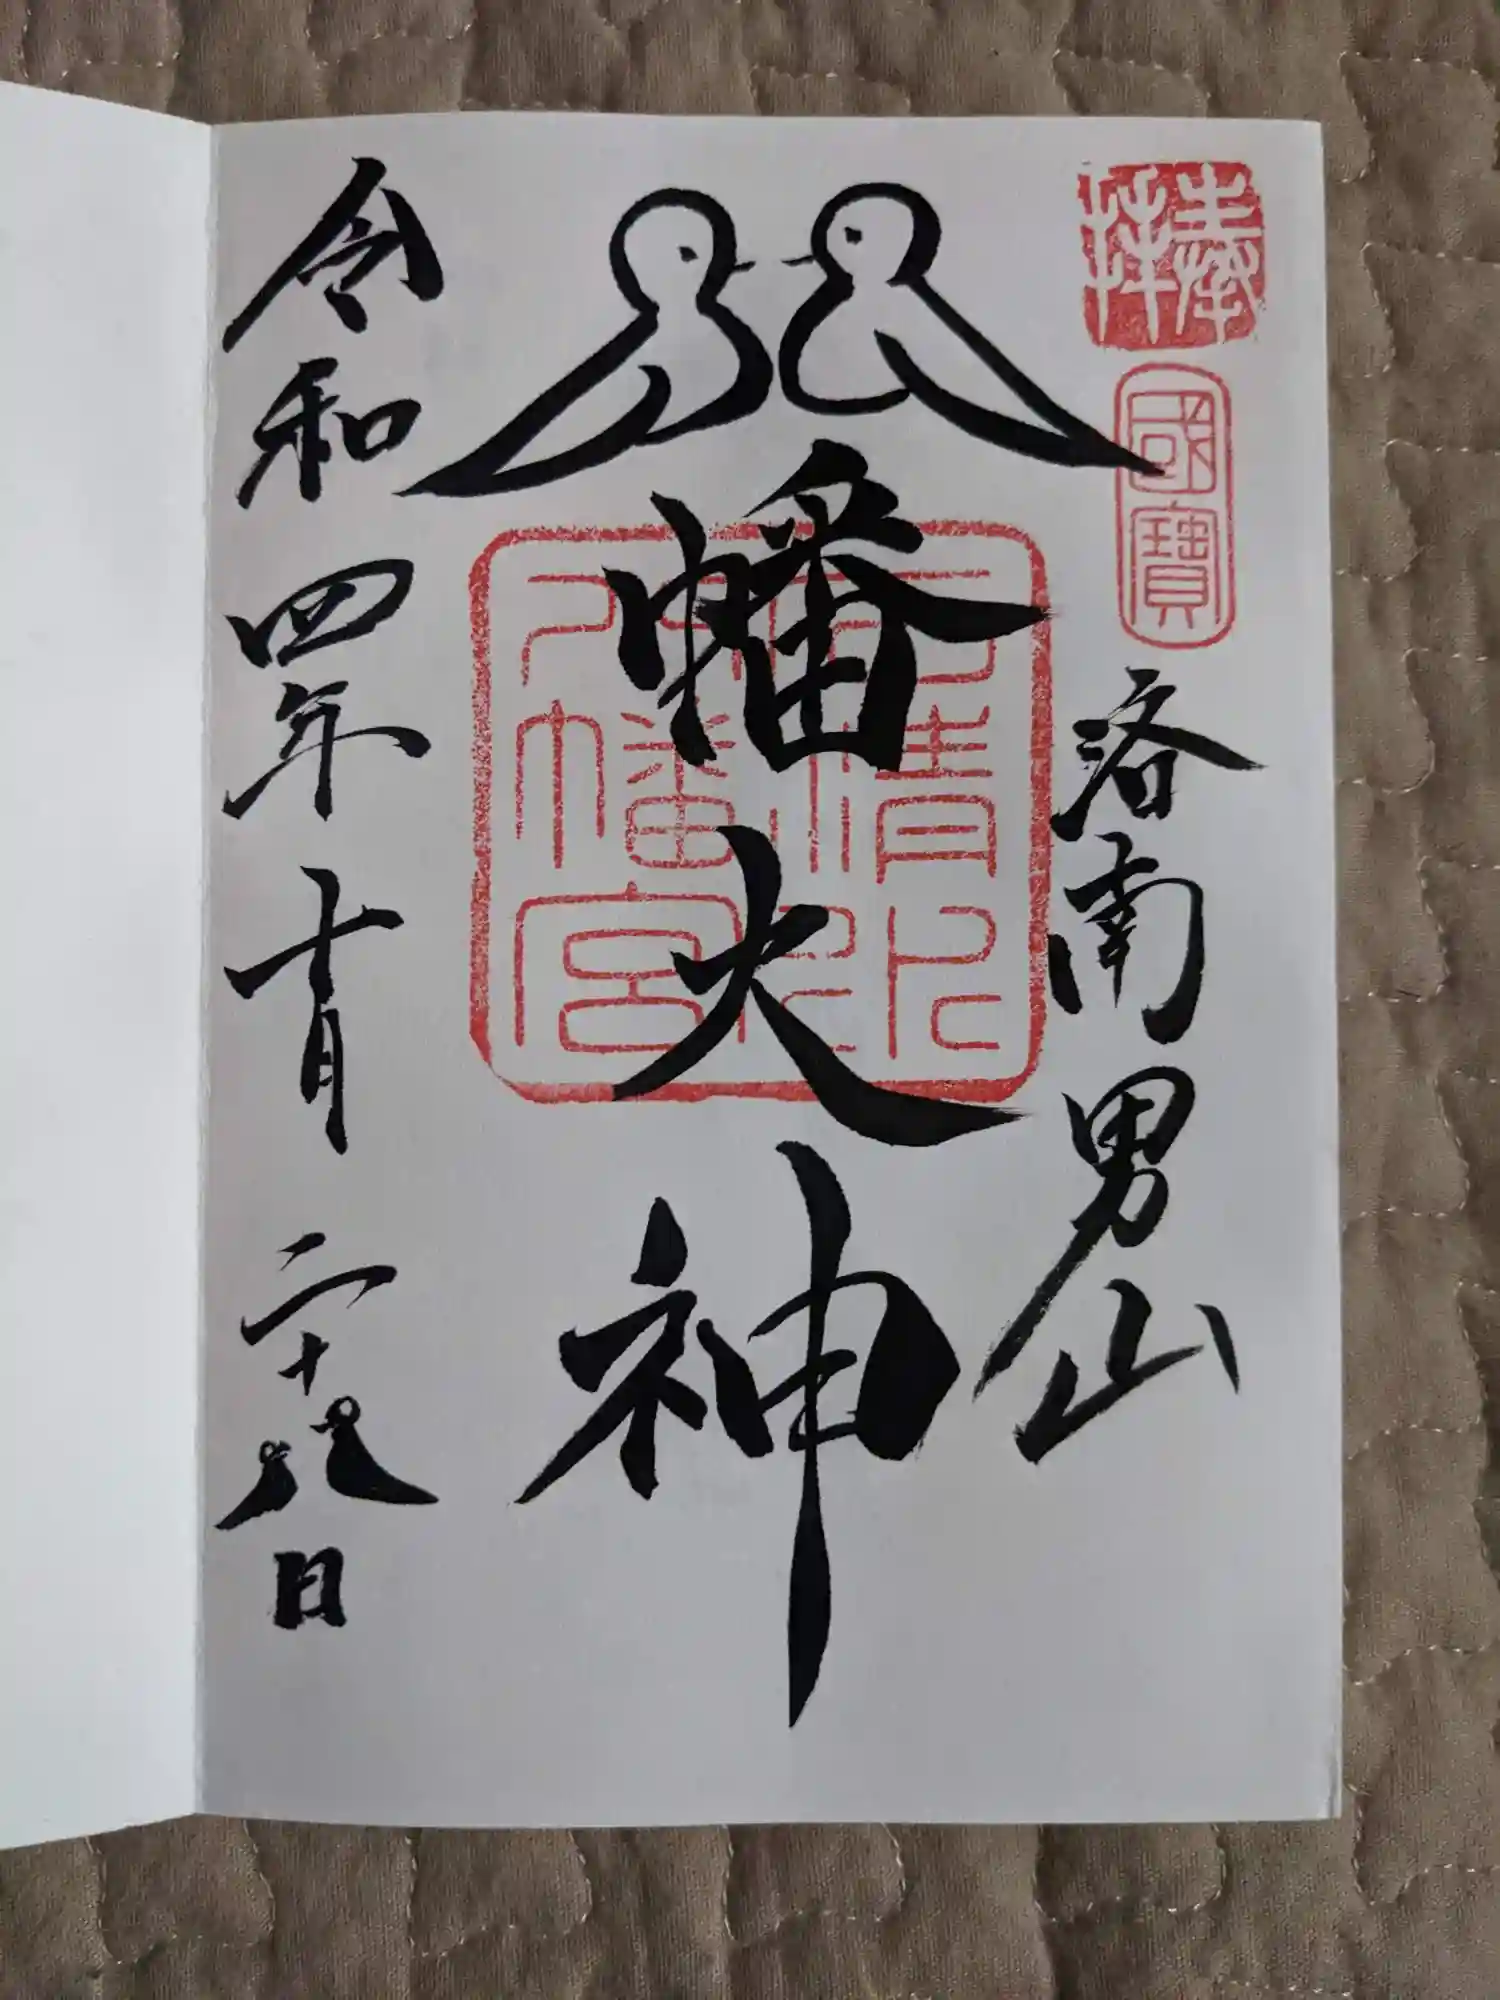 奉拝
國寳
洛南男山
八幡大神
石清水
八幡宮
令和四年十月二十八日